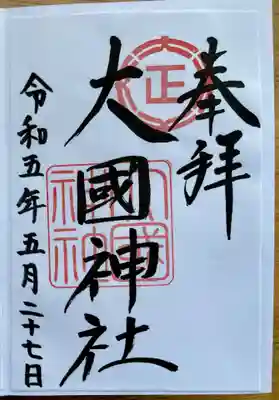 奉拝
大國神社
令和五年五月二十七日
正